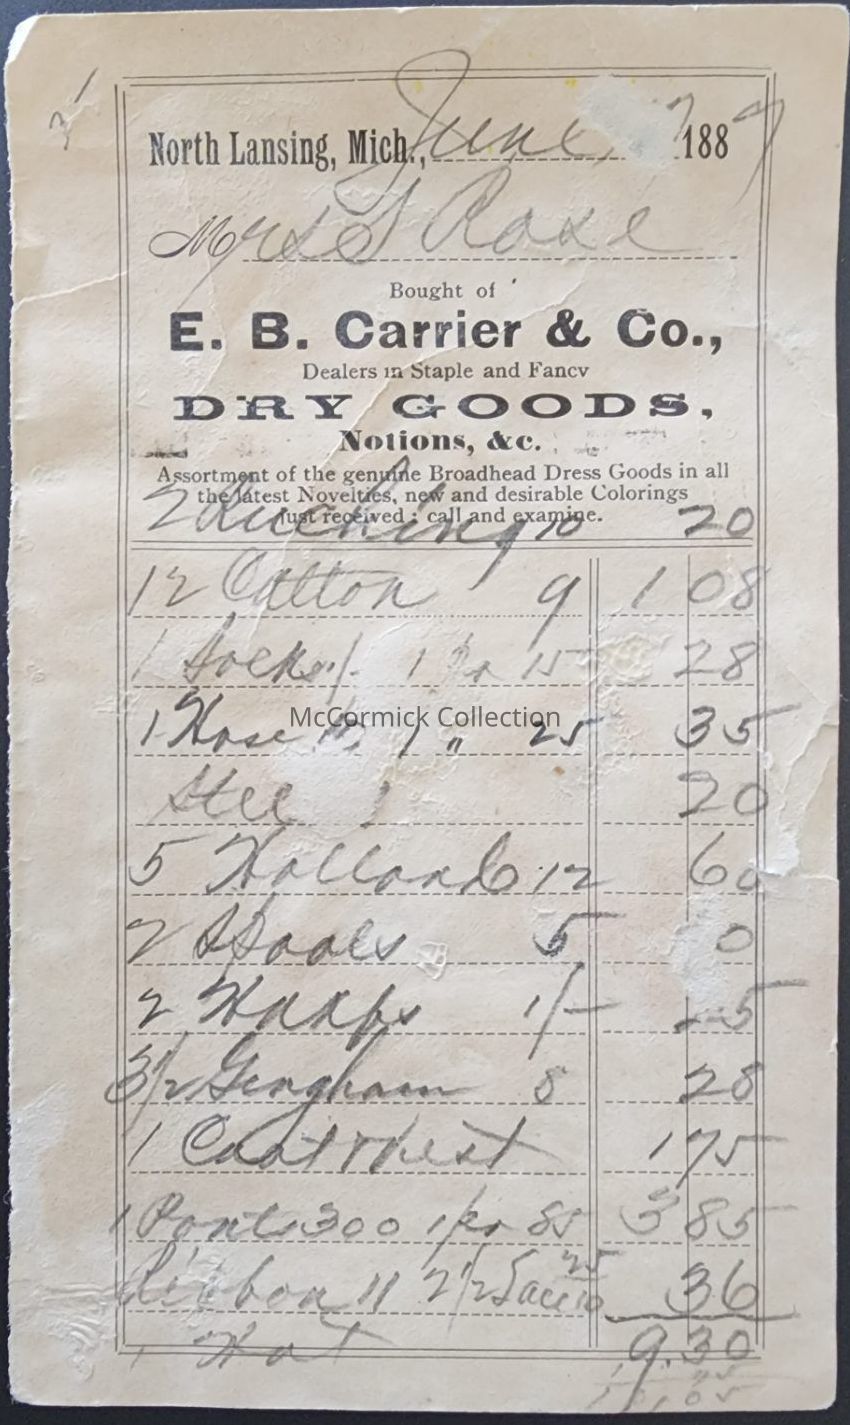 North Lansing, Mich., June 7 1887
Mrs S Rose
Bought of
E. B. Carrier & Co.,
Dealers in Staple and Fancy
DRY GOODS,
Notions, &c.
Assortment of the genuine Broadhead Dress Goods in all
the latest Novelties, new and desirable Colorings
just received; call and examine.
2 Ruching 10 20
12 Cotton 9 1 08
1 Socks 1/- 1 Pr 15 28
1 Hose 1 " 25 35
McCormick Collection
20
5 Holland 12 60
2 Spools 5 0
2 1/- 25
3 1/2 Gingham 8 28
1 Coat & Vest 1 75
1 Pants 300 1 pr 85 3 85
Ribbon 11 2 1/2 Lace 10 25 36
1 Hat 9.30